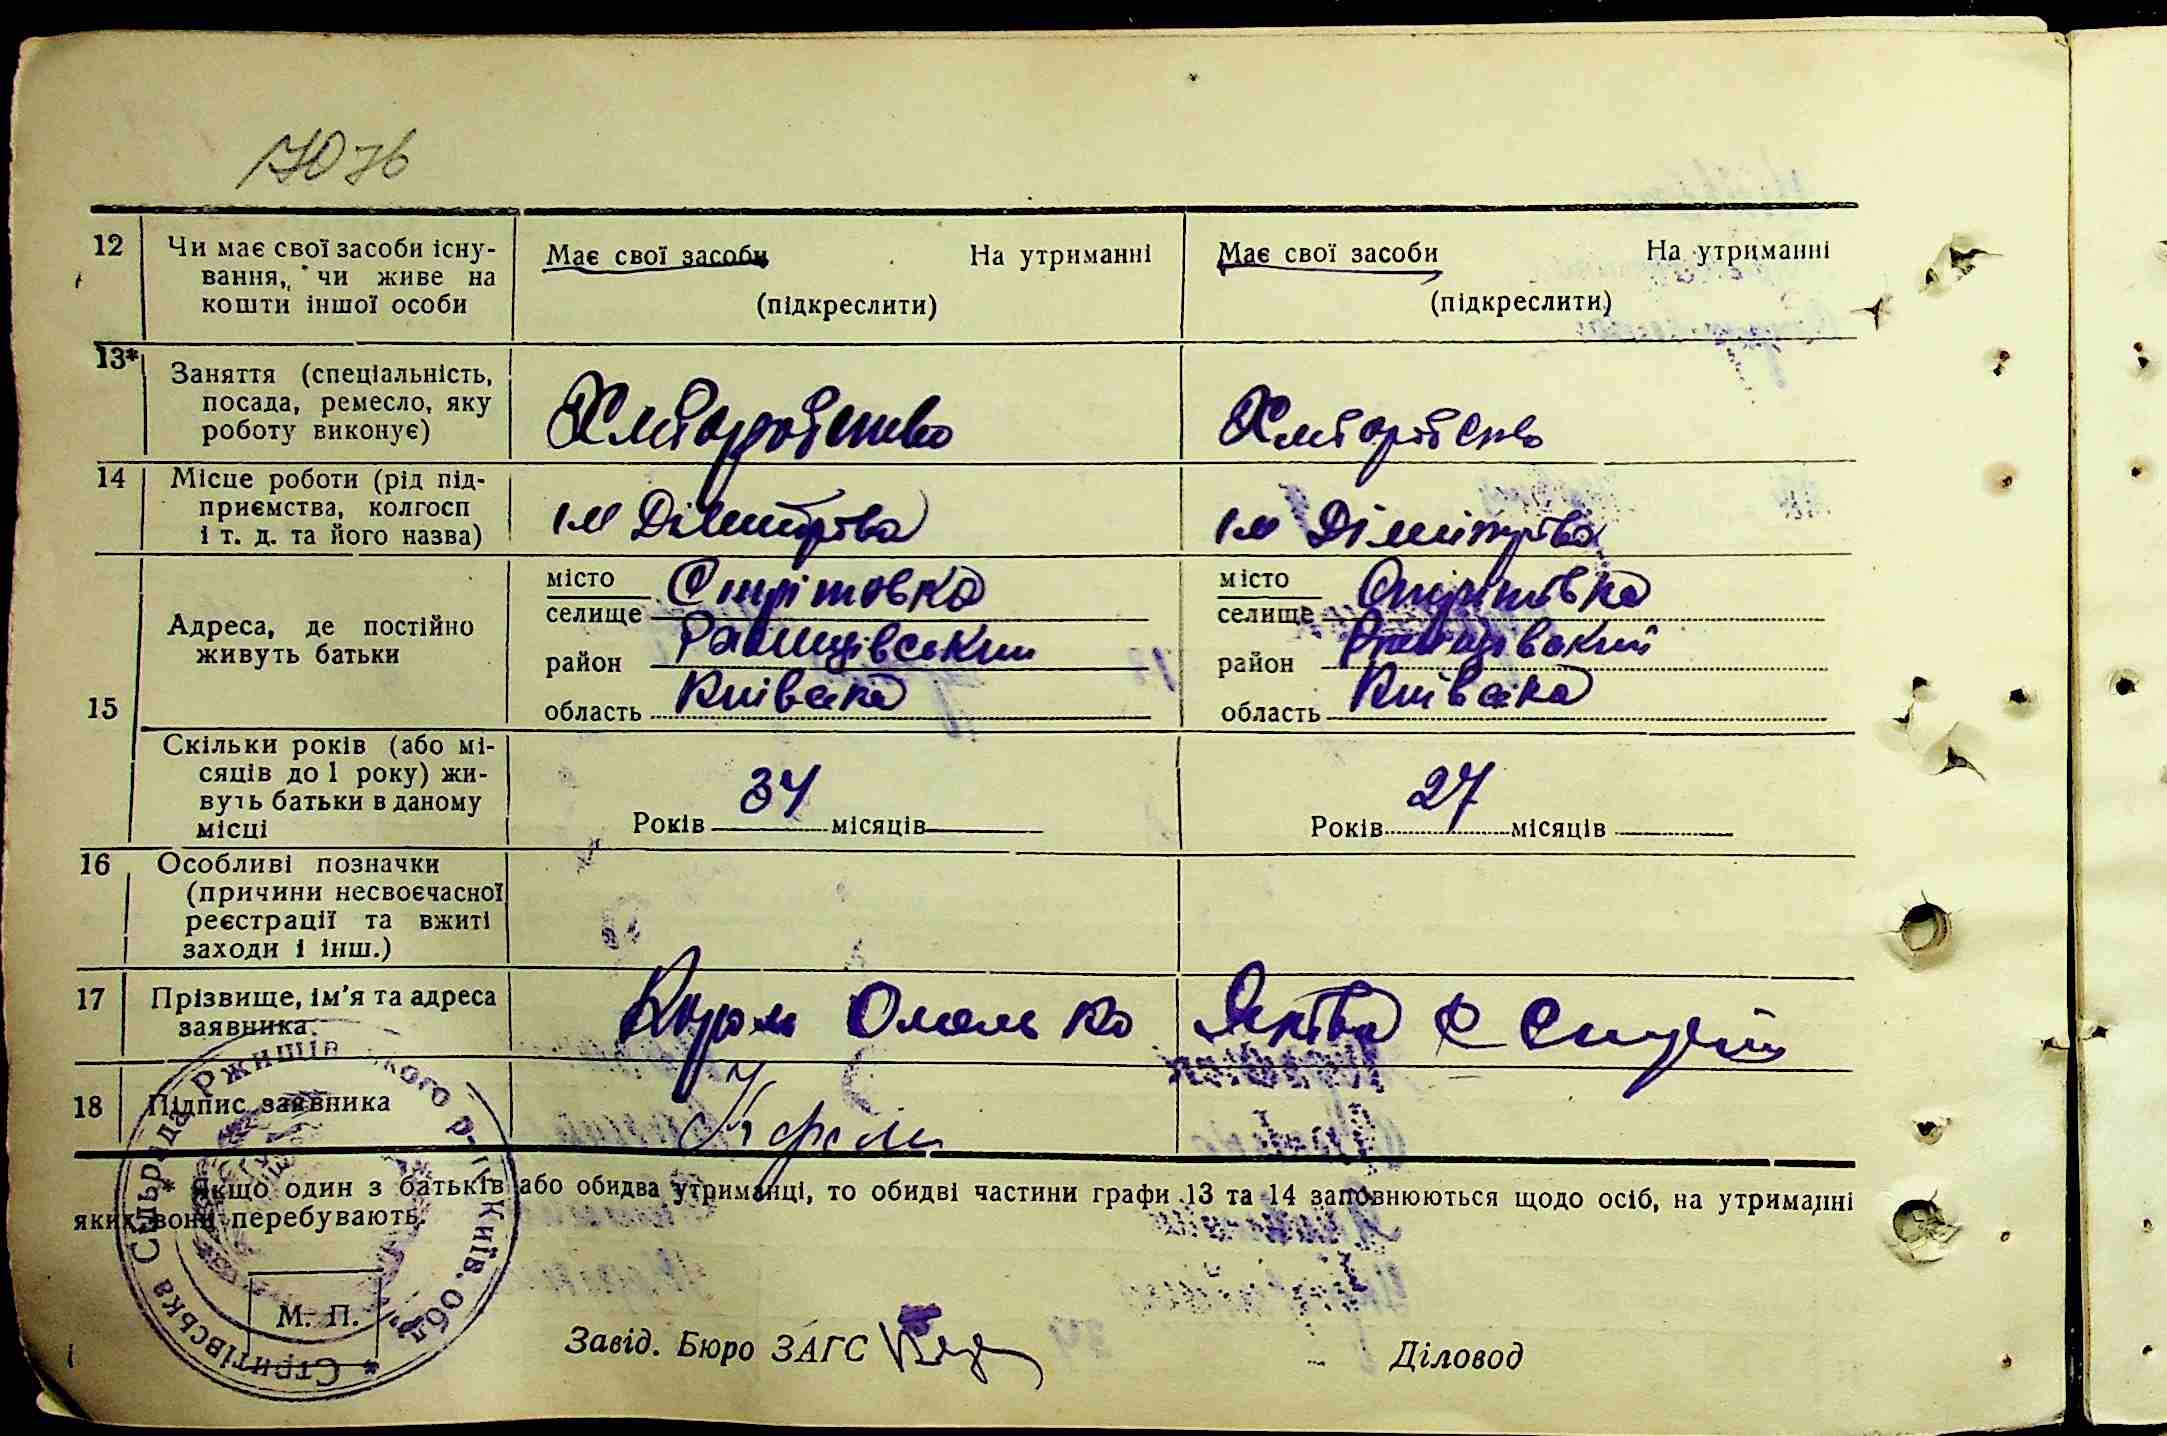 12 Чи має свої засоби існу-
вання, чи живе на
кошти іншої особи
Має свої засоби На утриманні
(підкреслити)
Має свої засоби На утриманні
(підкреслити)
13* Заняття (спеціальність,
посада, ремесло, яку
роботу виконує)
Хліборобство
Хлiборобство
14 Місце роботи (рід під-
приємства, колгосп
і т. д. та його назва)
ім Дімитрова
ім Дімітрова
15 Адреса, де постійно
живуть батьки
місто
селище Стрітовка
район Ржищівський
область Київська
місто
селище Стрітовка
район Ржищівський
область Київська
Скільки років (або мі-
сяців до 1 року) жи-
вуть батьки в даному
місці
Років 34 місяців
Років 27 місяців
16 Особливі позначки
(причини несвоєчасної
реєстрації та вжиті
заходи і інш.)
17 Прізвище, ім'я та адреса
заявника.
Король Омелько
18 Підпис заявника
Король
* Якщо один з батьків або обидва утриманці, то обидві частини графи 13 та 14 заповнюються щодо осіб, на утриманні
яких вони перебувають.
Стритівська Сільрада Ржищівського р-ну Київ. обл.
М. П.
Завід. Бюро ЗАГС
Діловод